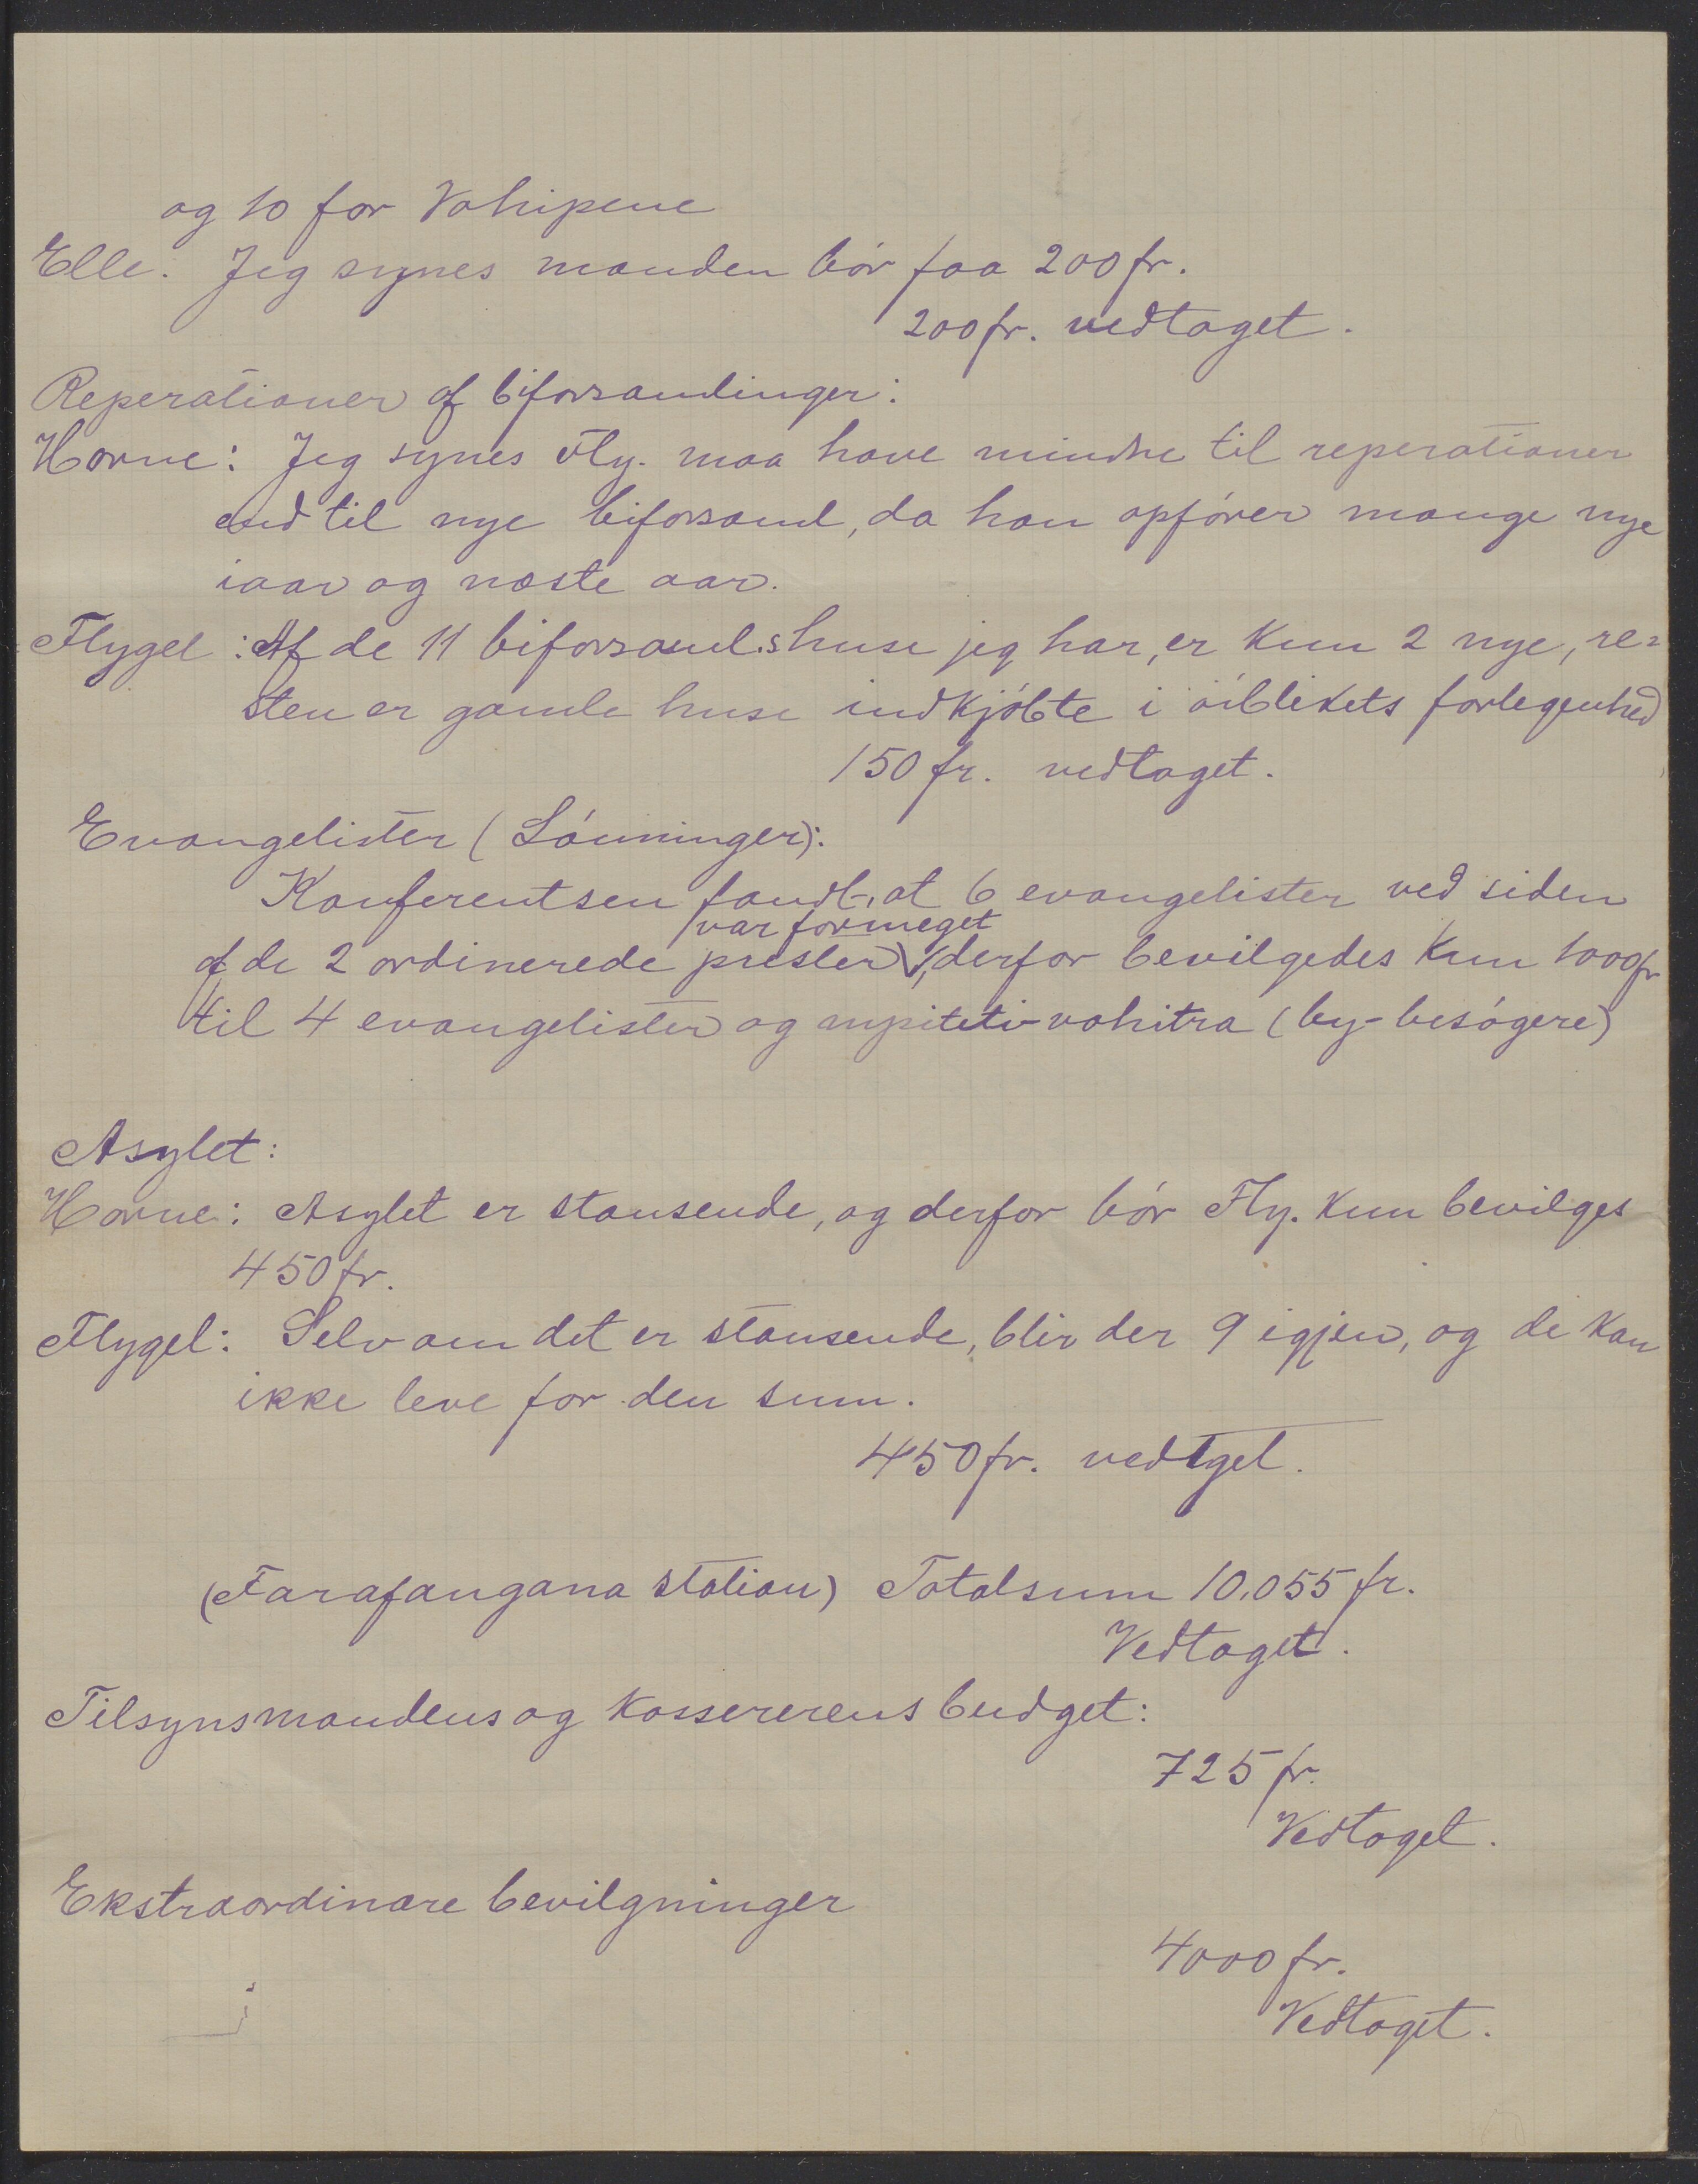 og 10 for Vohipeno
Elle: Jeg synes manden bör faa 200 fr.
200 fr. vedtaget.
Reperationer af biforsamlinger:
Horne: Jeg synes Fly. maa have mindre til reperationer
end til nye biforsaml, da han opförer mange nye
iaar og næste aar.
Flygel: Af de 11 biforsaml.shuse jeg har, er kun 2 nye, re=
sten er gamle huse indkjöbte i öiblikets forlegenhed
150 fr. vedtaget.
Evangelister (Lönninger):
Konferentsen fandt, at 6 evangelister ved siden
var formeget
af de 2 ordinerede prester, derfor bevilgedes kun 1000 fr
til 4 evangelister og mpitety-vohitra (by-besögere)
Asylet:
Horne: Asylet er stansende, og derfor bör Fly. kun bevilges
450 fr.
Flygel: Selv om det er stansende, blir der 9 igjen, og de kan
ikke leve for den sum.
450 fr. vedtget.
(Farafangana station) Totalsum 10.055 fr.
Vedtaget.
Tilsynsmandens og kassererens budget:
725 fr.
Vedtaget.
Ekstraordinære bevilgninger
4000 fr.
Vedtaget.